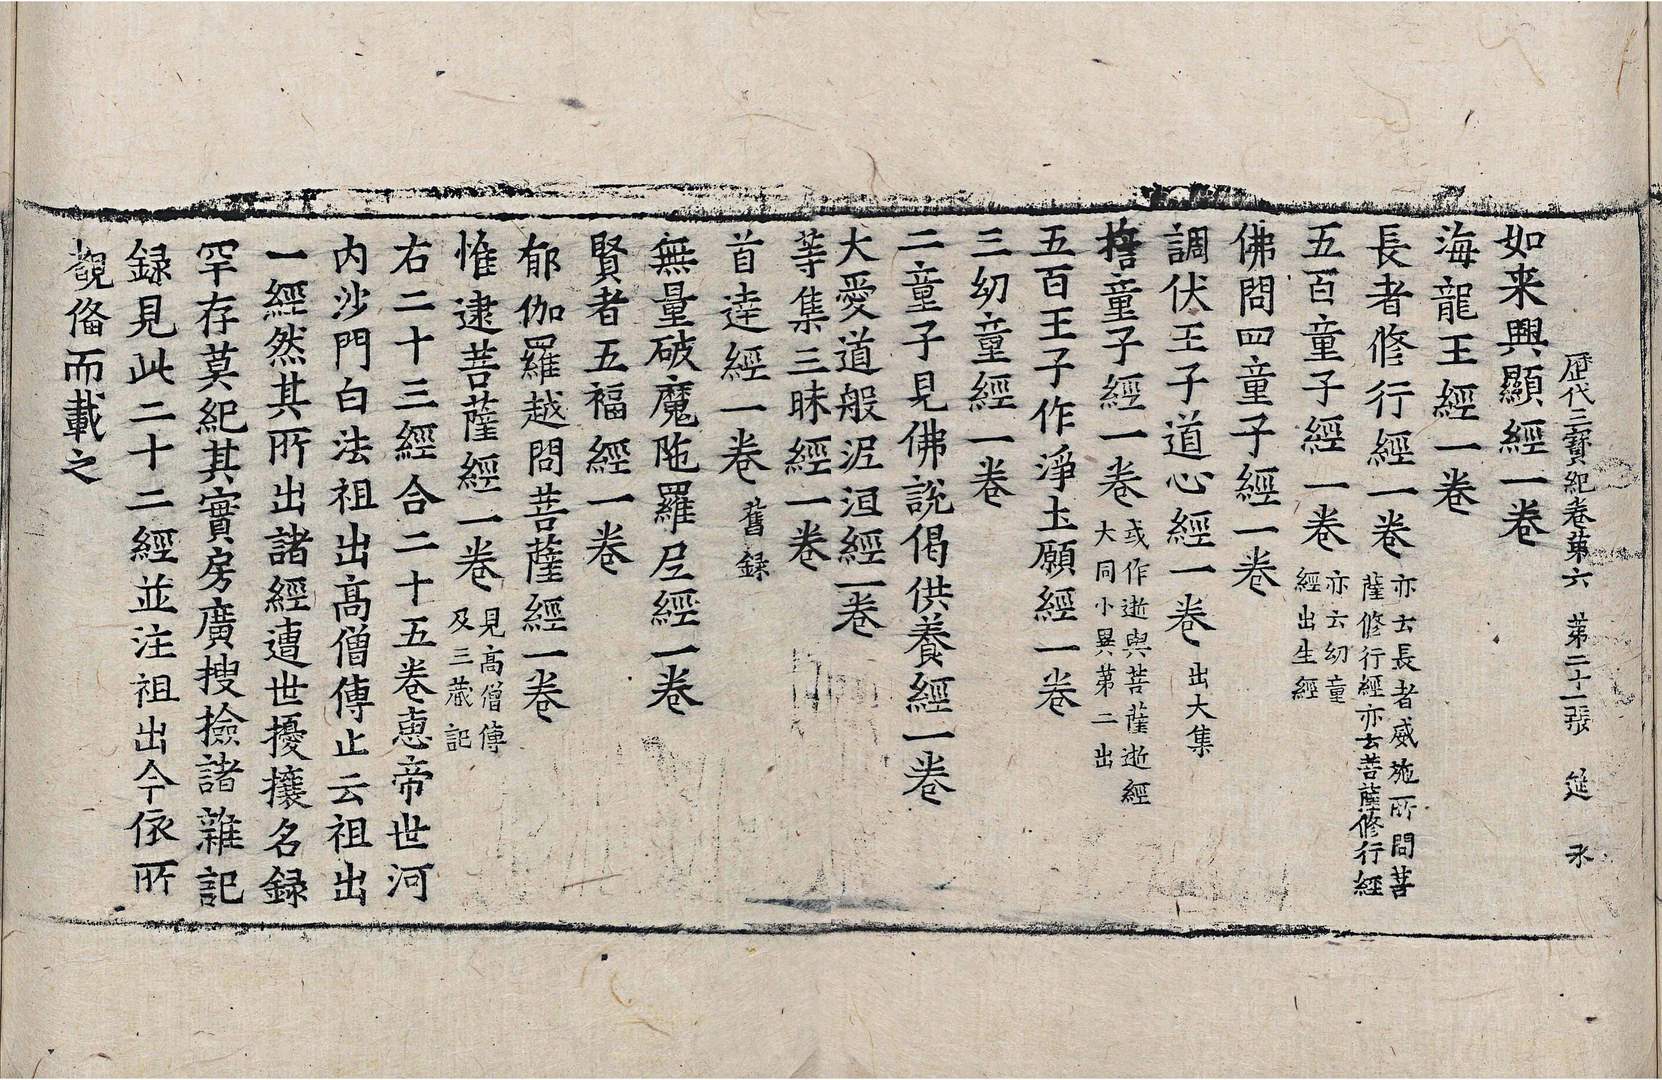 歷代三寶紀卷第六 第二十一張 㢟 𣱵
如来興顯經一卷
海龍王經一卷
長者修行經一卷 亦云長者威施所問菩
薩修行經亦云菩薩修行經
五百童子經一卷 亦云幼童
經出生經
佛問四童子經一卷
調伏王子道心經一卷 出大集
㨷童子經一卷 或作逝與菩薩逝經
大同小異第二出
五百王子作淨土願經一卷
三幼童經一卷
二童子見佛說偈供養經一卷
大愛道般泥洹經一卷
等集三昧經一卷
首達經一卷 舊録
無量破魔陁羅尼經一卷
賢者五福經一卷
郁伽羅越問菩薩經一卷
惟逮菩薩經一卷 見高僧傳
及三藏記
右二十三經合二十五卷惠帝世河
内沙門白法祖出高僧傳止云祖出
一經然其所出諸經遭世擾攘名録
罕存莫紀其實房廣搜撿諸雜記
録見此二十二經並注祖出今依所
覩俻而載之